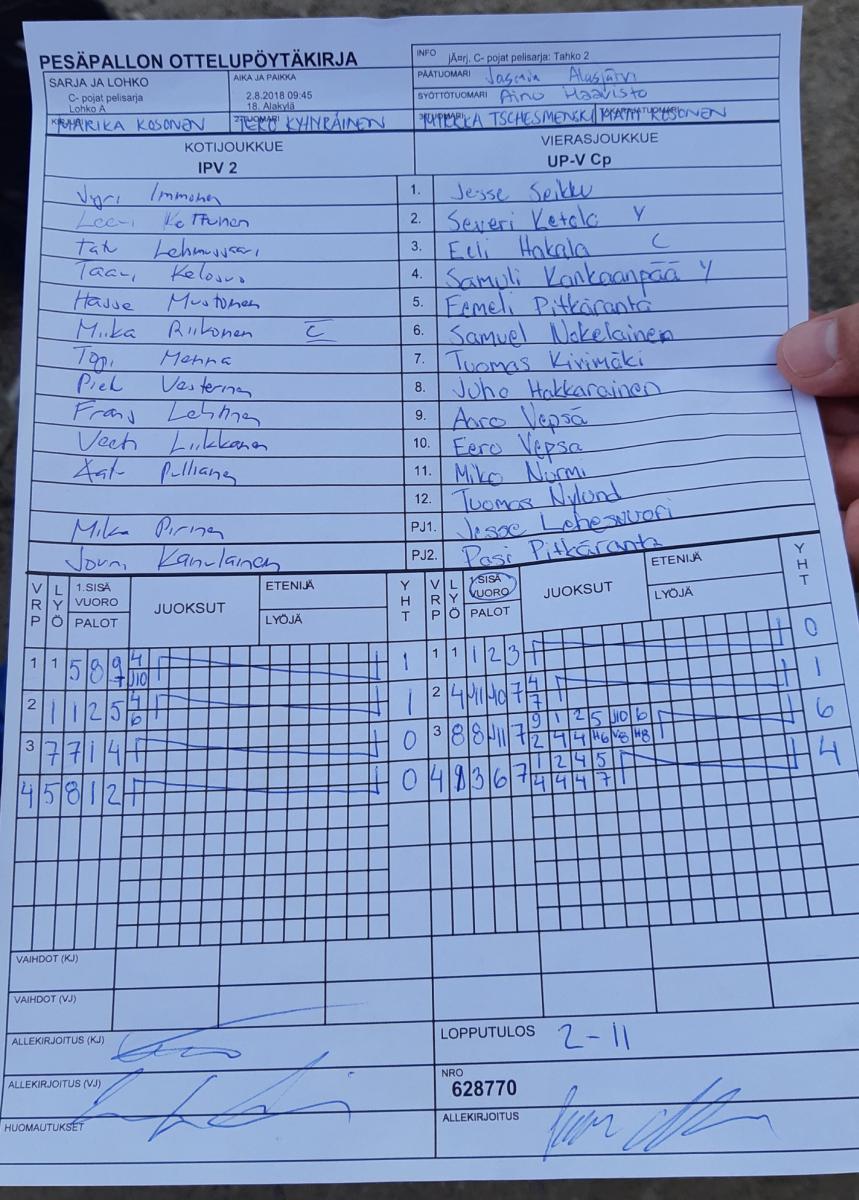 PESÄPALLON OTTELUPÖYTÄKIRJA
INFO jÄ¤rj. C- pojat pelisarja: Tahko 2
SARJA JA LOHKO
C- pojat pelisarja
Lohko A
AIKA JA PAIKKA
2.8.2018 09:45
18. Alakylä
PÄÄTUOMARI Jasmin Alasjärvi
SYÖTTÖTUOMARI Aino Haavisto
MARIKA KOSONEN
TERO KYHYRÄINEN
MIRKKA TSCHESMENSKI
MATTI KOSONEN
KOTIJOUKKUE
IPV 2
VIERASJOUKKUE
UP-V Cp
Immonen 1. Jesse Seikku
Leevi Kettunen 2. Severi Ketola Y
Lehmusvaari 3. Eeli Hakala C
Taavi 4. Samuli Kankaanpää Y
Hasse Mustonen 5. Eemeli Pitkäranta
Miika Riikonen C 6. Samuel Nokelainen
Topi Menna 7. Tuomas Kivimäki
Vesterinen 8. Juho Hakkarainen
Frans Lehtinen 9. Aaro Vepsä
Liikkanen 10. Eero Vepsä
Pulliainen 11. Miko Nurmi
12. Tuomas Nylund
Mika Pirinen PJ1. Jesse Lehesvuori
Jouni PJ2. Pasi Pitkäranta
VRP LYÖ 1.SISÄ VUORO PALOT JUOKSUT ETENIJÄ LYÖJÄ YHT VRP LYÖ 1.SISÄ VUORO PALOT JUOKSUT ETENIJÄ LYÖJÄ YHT
1 1 5 8 9 4 1 1 1 1 2 3 0
7 J10
2 1 1 2 5 4 1 2 4 J11 J10 7 4 1
6 7
3 7 7 1 4 0 3 8 8 J11 7 9 1 2 5 J10 6 6
2 4 4 H6 V8 H8
4 5 8 1 2 0 4 3 6 7 1 2 4 5 4
4 4 4 7
VAIHDOT (KJ)
VAIHDOT (VJ)
ALLEKIRJOITUS (KJ)
LOPPUTULOS 2-11
ALLEKIRJOITUS (VJ)
NRO
628770
HUOMAUTUKSET
ALLEKIRJOITUS